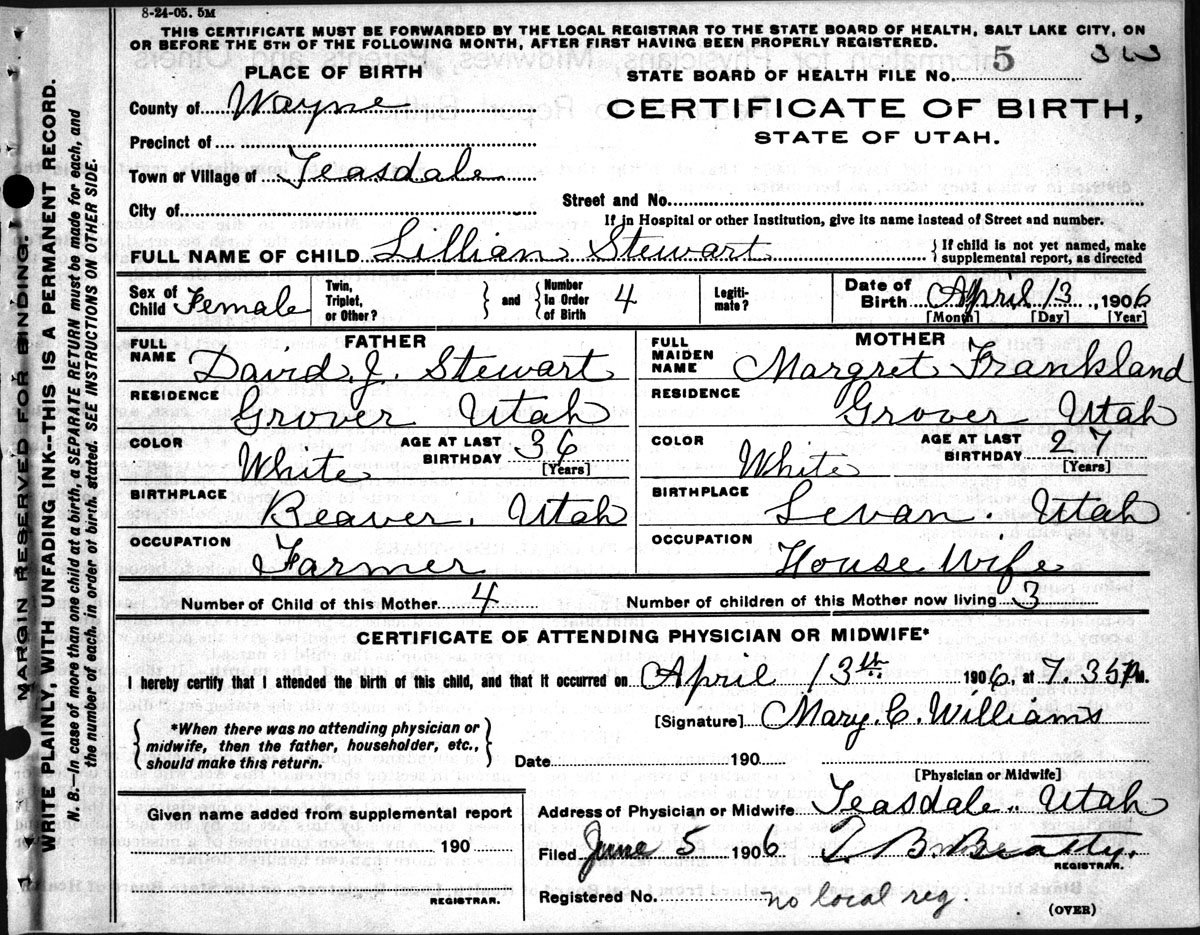 8-24-05. 5M
THIS CERTIFICATE MUST BE FORWARDED BY THE LOCAL REGISTRAR TO THE STATE BOARD OF HEALTH, SALT LAKE CITY, ON
OR BEFORE THE 5TH OF THE FOLLOWING MONTH, AFTER FIRST HAVING BEEN PROPERLY REGISTERED.
PLACE OF BIRTH
STATE BOARD OF HEALTH FILE NO. 5
County of Wayne
CERTIFICATE OF BIRTH,
STATE OF UTAH.
Precinct of
Town or Village of Teasdale
City of
Street and No.
If in Hospital or other Institution, give its name instead of Street and number.
FULL NAME OF CHILD Lillian Stewart { If child is not yet named, make
supplemental report, as directed
Sex of Child Female
Twin, Triplet, or Other? } and { Number in Order of Birth 4
Legitimate?
Date of Birth April 13, 1906
[Month] [Day] [Year]
FATHER
FULL NAME David. J. Stewart
RESIDENCE Grover Utah
COLOR White
AGE AT LAST BIRTHDAY 36 [Years]
BIRTHPLACE Beaver, Utah
OCCUPATION Farmer
MOTHER
FULL MAIDEN NAME Margret Frankland
RESIDENCE Grover Utah
COLOR White
AGE AT LAST BIRTHDAY 27 [Years]
BIRTHPLACE Levan. Utah
OCCUPATION House Wife
Number of Child of this Mother 4
Number of children of this Mother now living 3
CERTIFICATE OF ATTENDING PHYSICIAN OR MIDWIFE*
I hereby certify that I attended the birth of this child, and that it occurred on April 13th. 1906, at 7.35 P.M.
*When there was no attending physician or
midwife, then the father, householder, etc.,
should make this return.
[Signature] Mary. C. Williams
Date 190
[Physician or Midwife]
Given name added from supplemental report
190
REGISTRAR.
Address of Physician or Midwife Teasdale, Utah
Filed June 5 1906 T. B. Beatty.
REGISTRAR.
Registered No. no local reg.
(OVER)
MARGIN RESERVED FOR BINDING.
WRITE PLAINLY, WITH UNFADING INK--THIS IS A PERMANENT RECORD.
N. B.—In case of more than one child at a birth, a SEPARATE RETURN must be made for each, and
the number of each, in order of birth, stated. SEE INSTRUCTIONS ON OTHER SIDE.